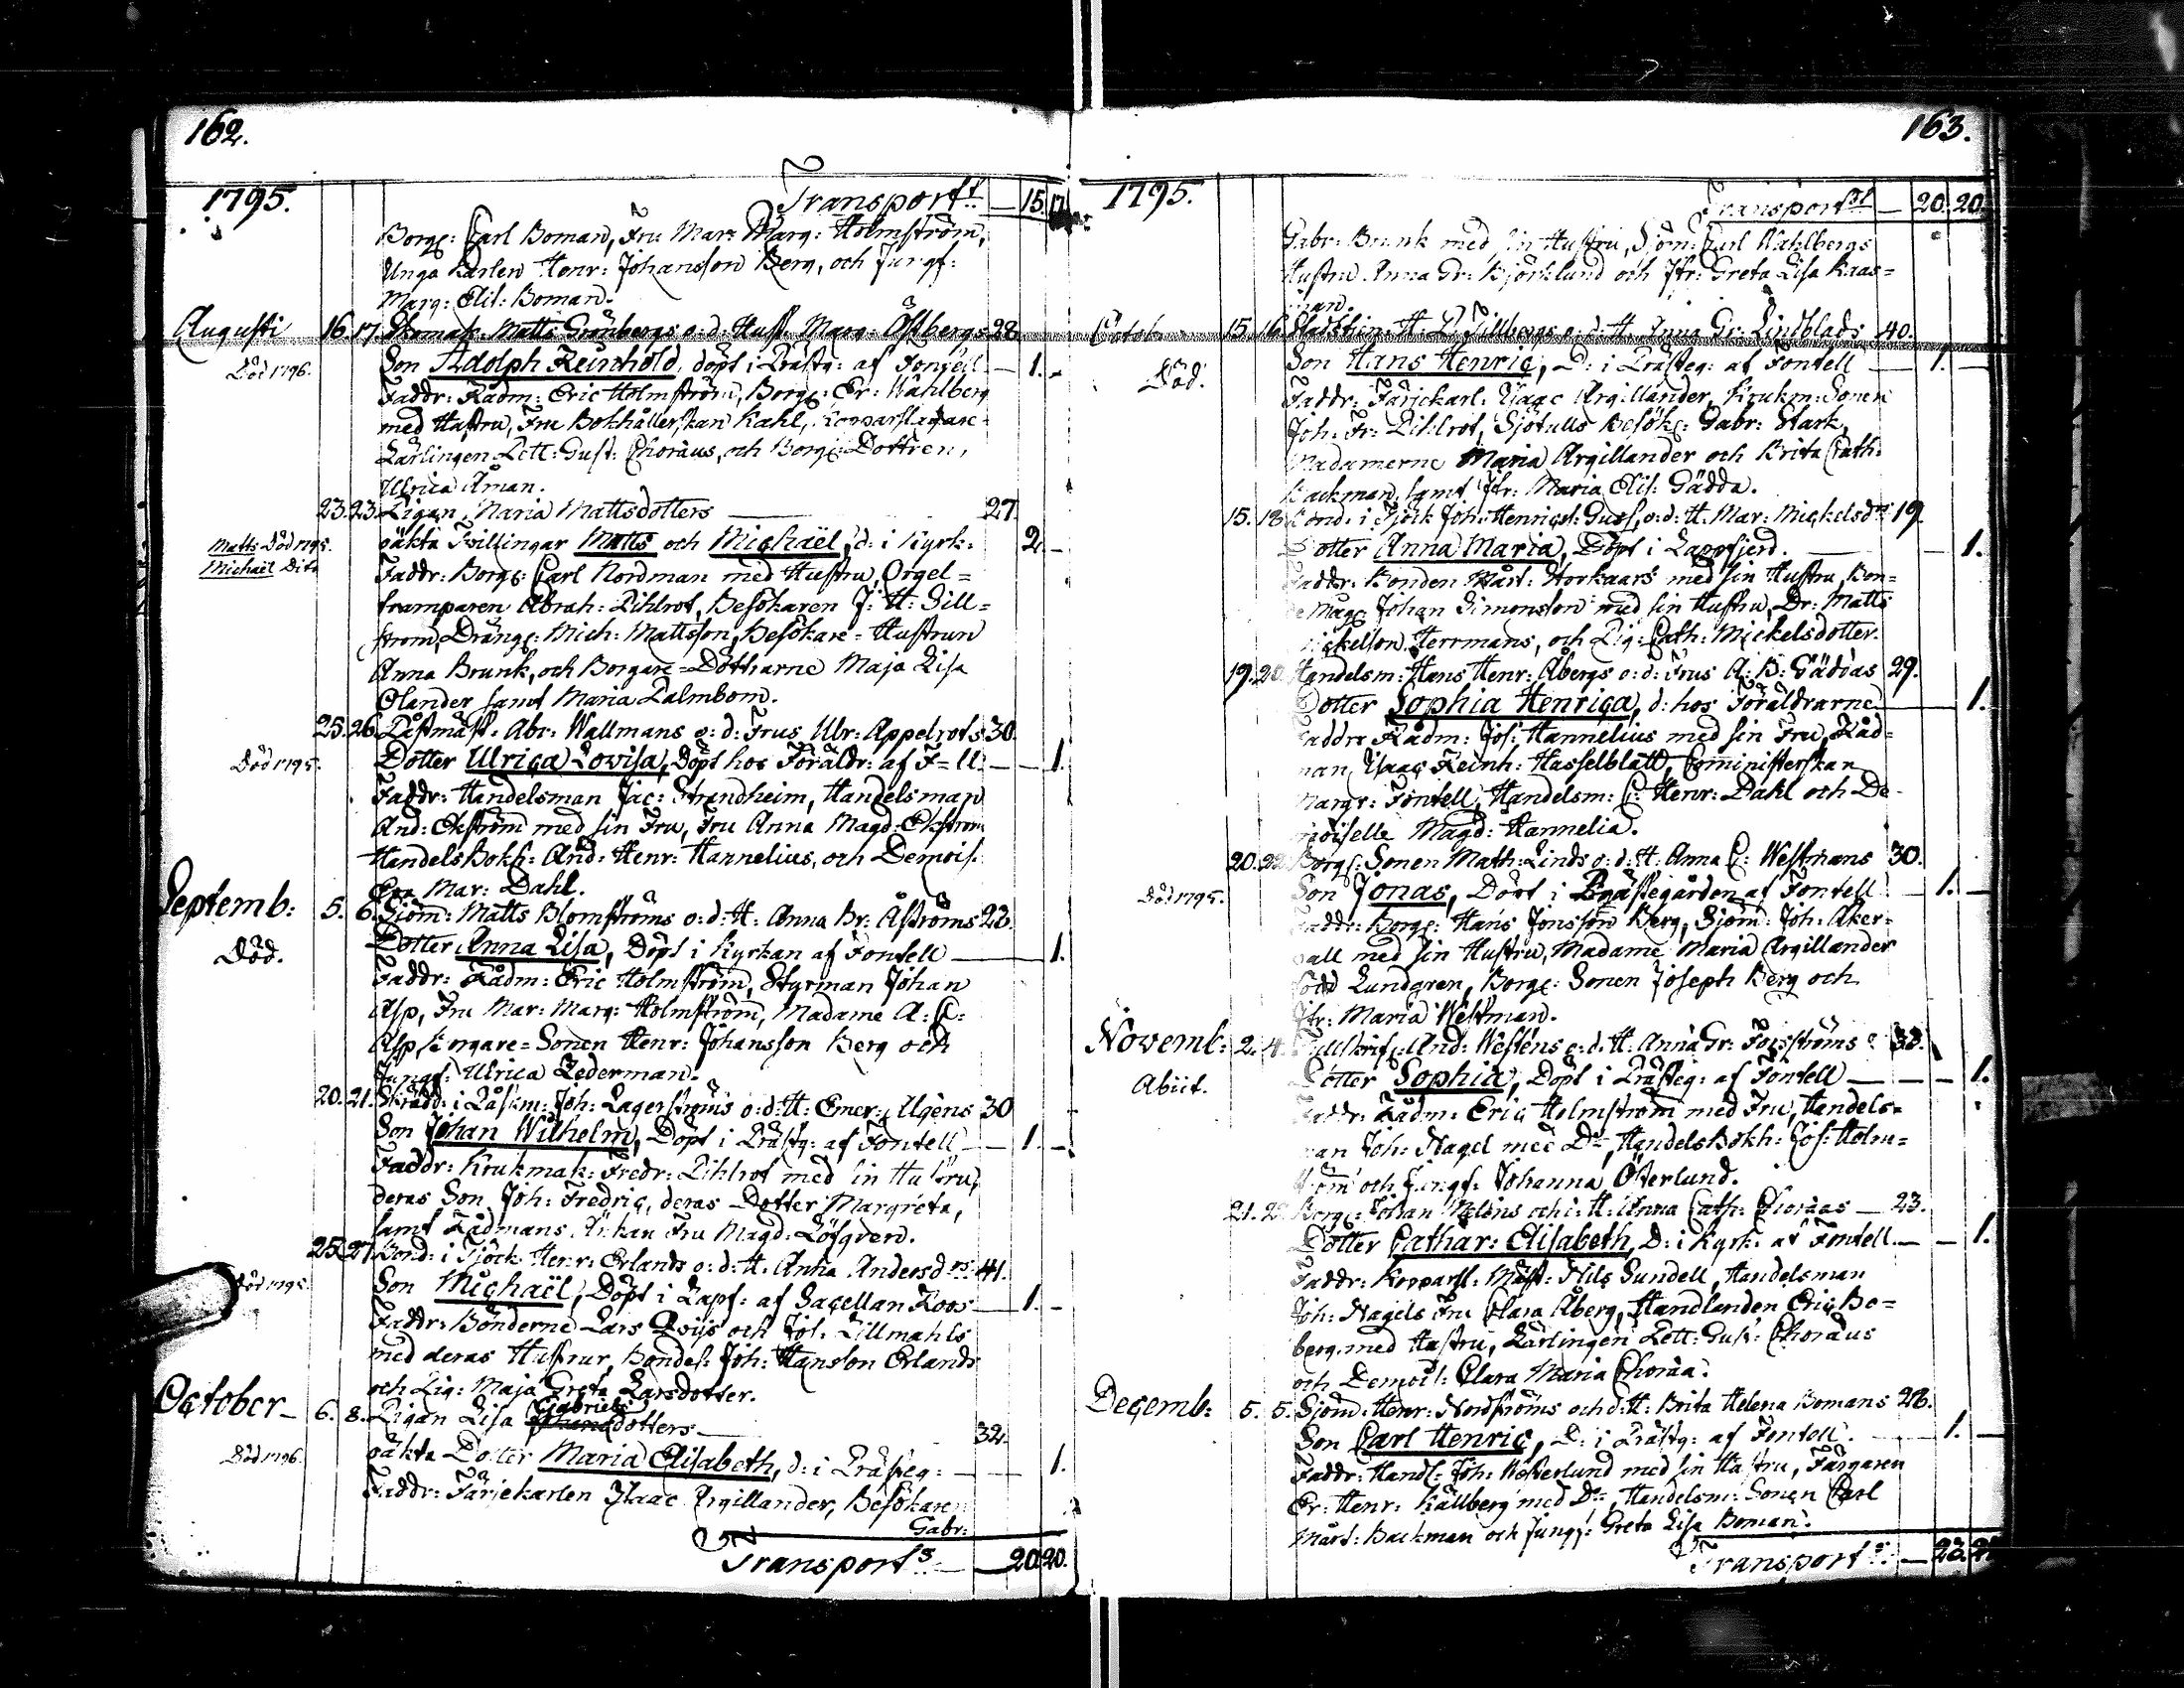 162.
1795. Transport 15. 17
Borg: Carl Boman, Fru Mar: Marg: Holmström,
Unga Karlen Henr: Johansson Berg, och Jungf:
Marg: Elis: Boman.
Augusti 16. 17. Skomak. Matts Grönbergs o: d: Hust. Marg: Åstbergs 28
Död 1796. Son Adolph Reinhold, döpt i Prästg: af Fontell — 1. -
Faddr: Rådm: Eric Holmström, Borg: Er: Wahlberg
med Hustru, Fru Bokhållerskan Kahl, Kopparslagare-
Lärlingen Pett: Gust: Choräus, och Borg: Dottren,
Ulrica Åman.
23. 23. Pigan Maria Mattsdotters — 27.
Matts Död 1795. oäkta Twillingar Matts och Michaël, d: i Kyrk: 2. -
Michaël Dito Faddr: Borg: Carl Nordman med Hustru, Orgel=
tramparen Abrah: Pihlrot, Besökaren J: H: Sill=
ström, Dräng: Mich: Mattsson, Besökare=Hustrun
Anna Brunk, och Borgare=Döttrarne Maja Lisa
Olander samt Maria Palmbom.
25. 26. Postmäst. Abr: Wallmans o: d: Frus Ulr: Appelrots 30
Död 1795. Dotter Ulrica Lovisa, Döpt hos Föräldr: af F=ll. — — 1.
Faddr: Handelsman Jac: Strandheim, Handelsman
And: Ekström med sin Fru, Fru Anna Magd: Ekström
Handels Bokh: And: Henr: Hannelius, och Demois.
Eva Mar: Dahl.
Septemb: 5. 6. Sjöm: Matts Blomströms o: d: H: Anna Br: Åströms 23.
Död. Dotter Anna Lisa, Döpt i Kyrkan af Fontell — 1.
Faddr: Rådm: Eric Holmström, Styrman Johan
Asp, Fru Mar: Marg: Holmström, Madame A: C:
Asp, Borgare=Sonen Henr: Johansson Berg och
Jungf: Ulrica Lederman.
20. 21. Skrädd: i Påskm: Joh: Lagerströms o: d: H: Emer: Algens 30
Son Johan Wilhelm, Döpt i Prästg: af Fontell — 1. -
Faddr: Krukmak: Fredr: Pihlrot med sin Hustru,
deras Son Joh: Fredric, deras Dotter Margreta,
samt Rådmans Änkan Fru Magd: Löfgren.
25. 27. Bond: i Tjöck Henr: Erlands o: d: H: Anna Andersd:rs 41.
Död 1795. Son Michaël, Döpt i Lapf: af Sacellan Roos — 1. -
Faddr: Bönderne Lars Qvijs och Joh. Lillmahls
med deras Hustrur, Bondes: Joh: Hansson Erlands
och Pig: Maja Greta Larsdotter.
October — 6. 8. Pigan Lisa Gabriels dotters — 32.
Död 1796. oäkta Dotter Maria Elisabeth, d: i Prästeg: — — 1.
Faddr: Färjekarlen Isaac Argillander, Besökaren
Gabr:
Transport — 20. 20.
163.
1795. Transport — 20. 20.
Gabr: Brunk med sin Hustru, Sjöm: Carl Wahlbergs
Hustru Anna Gr: Björklund och Jfr: Greta Lisa Kaas=
man.
Octob: 15. 16. H: Tillbergs o: d: H. Anna Gr: Lindblads 40.
Död. Son Hans Henric, D: i Prästeg: af Fontell — 1. —
Faddr: Färjekarl: Isaac Argillander, Krukm: Sonen
Joh: Fr: Pihlrot, Sjötulls Besök: Gabr: Stark,
Madamerne Maria Argillander och Brita Cath:
Backman, samt Jfr: Maria Elis: Gädda.
15. 18. Bond: i Tjöck Joh: Henricss: Guss, o: d: H. Mar: Mickelsd:rs 19.
Dotter Anna Maria, Döpt i Lappfjerd. — 1.
Faddr: Bonden Mårt: Storkaars med sin Hustru, Bon=
de Måg: Johan Simonsson med sin Hustru, Dr: Matts
Mickelsson Herrmans, och Pig: Cath: Mickelsdotter.
19. 20. Handelsm: Hans Henr: Åbergs o: d: Frus A: B: Gäddas 29.
Dotter Sophia Henrica, d: hos Föräldrarne — 1.
Faddr: Rådm: Jos: Hannelius med sin Fru, Råd=
man Isaac Reinh: Hasselblatt, Comministerskan
Margr: Fontell, Handelsm: C: Henr: Dahl och De-
moiselle Magd: Hannelia.
20. 22. Borg: Sonen Math: Linds o: d: H: Anna C: Westmans 30.
Död 1795. Son Jonas, Döpt i Prästegården af Fontell — 1. —
Faddr: Borg: Hans Jonsson Berg, Sjöm: Joh: Åker=
vall med sin Hustru, Madame Maria Argillander
född Lundgren, Borg: Sonen Joseph Berg och
Jfr: Maria Westman.
Novemb: 2. 4. Tullskrif: And: Westens o: d: H. Anna Gr: Forsströms 38.
Abiit. Dotter Sophia, Döpt i Prästeg: af Fontell — — — 1.
Faddr: Rådm: Eric Holmström med Fru, Handels=
man Joh: Nagel med D:o, Handels Bokh: Jos: Holm=
ström och Jungf: Johanna Österlund.
21. 22. Borg: Johan Melins och d: H: Anna Cath: Choräas — 23.
Dotter Cathar: Elisabeth, D: i Kyrk: af Fontell. — — 1.
Faddr: Kopparsl: Mäst: Nils Sundell, Handelsman
Joh: Nagels Fru Clara Åberg, Handlanden Eric Bo=
berg med Hustru, Lärlingen Pett: Gust: Choräus
och Demois: Clara Maria Choräa.
Decemb: 5. 5. Sjöm: Henr: Nordströms och d: H: Brita Helena Bomans 28.
Son Carl Henric, D: i Prästg: af Fontell. — 1. —
Faddr: Handl: Joh: Westerlund med sin Hustru, Färgaren
Er: Henr: Källberg med D:o, Handelsm: Sonen Carl
Mårt: Backman och Jungf: Greta Lisa Boman.
Transport —